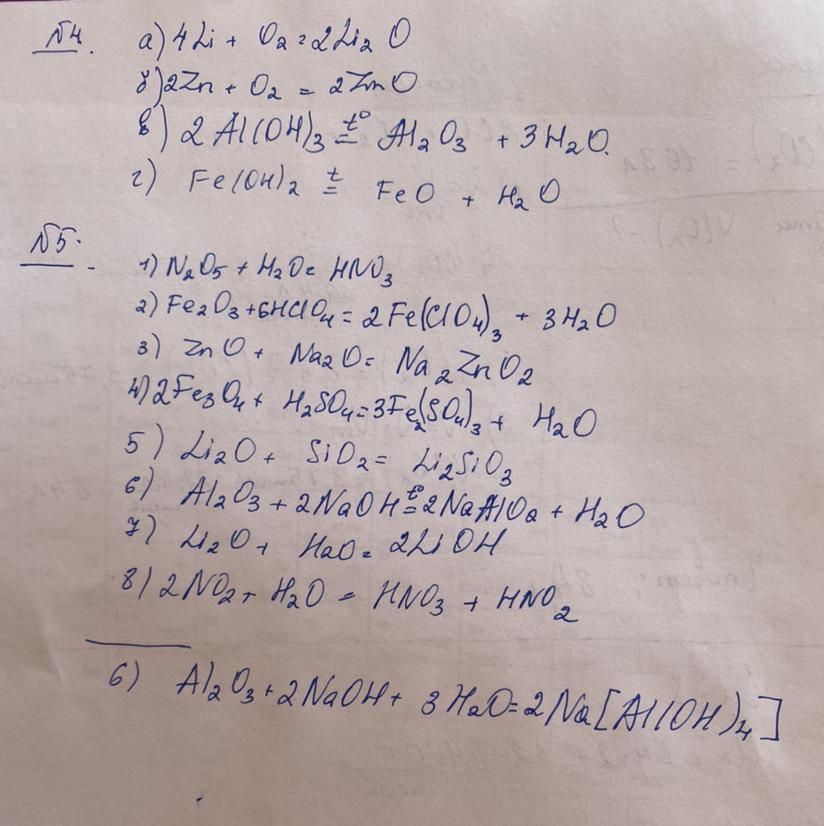 №4. а) 4Li + O₂ = 2Li₂O
б) 2Zn + O₂ = 2ZnO
в) 2Al(OH)₃ =t°= Al₂O₃ + 3H₂O.
г) Fe(OH)₂ =t= FeO + H₂O
№5.
1) N₂O₅ + H₂O = HNO₃
2) Fe₂O₃ + 6HClO₄ = 2Fe(ClO₄)₃ + 3H₂O
3) ZnO + Na₂O = Na₂ZnO₂
4) 2Fe₃O₄ + H₂SO₄ = 3Fe₂(SO₄)₃ + H₂O
5) Li₂O + SiO₂ = Li₂SiO₃
6) Al₂O₃ + 2NaOH =t°= 2NaAlO₂ + H₂O
7) Li₂O + H₂O = 2LiOH
8) 2NO₂ + H₂O = HNO₃ + HNO₂
6) Al₂O₃ + 2NaOH + 3H₂O = 2Na[Al(OH)₄]